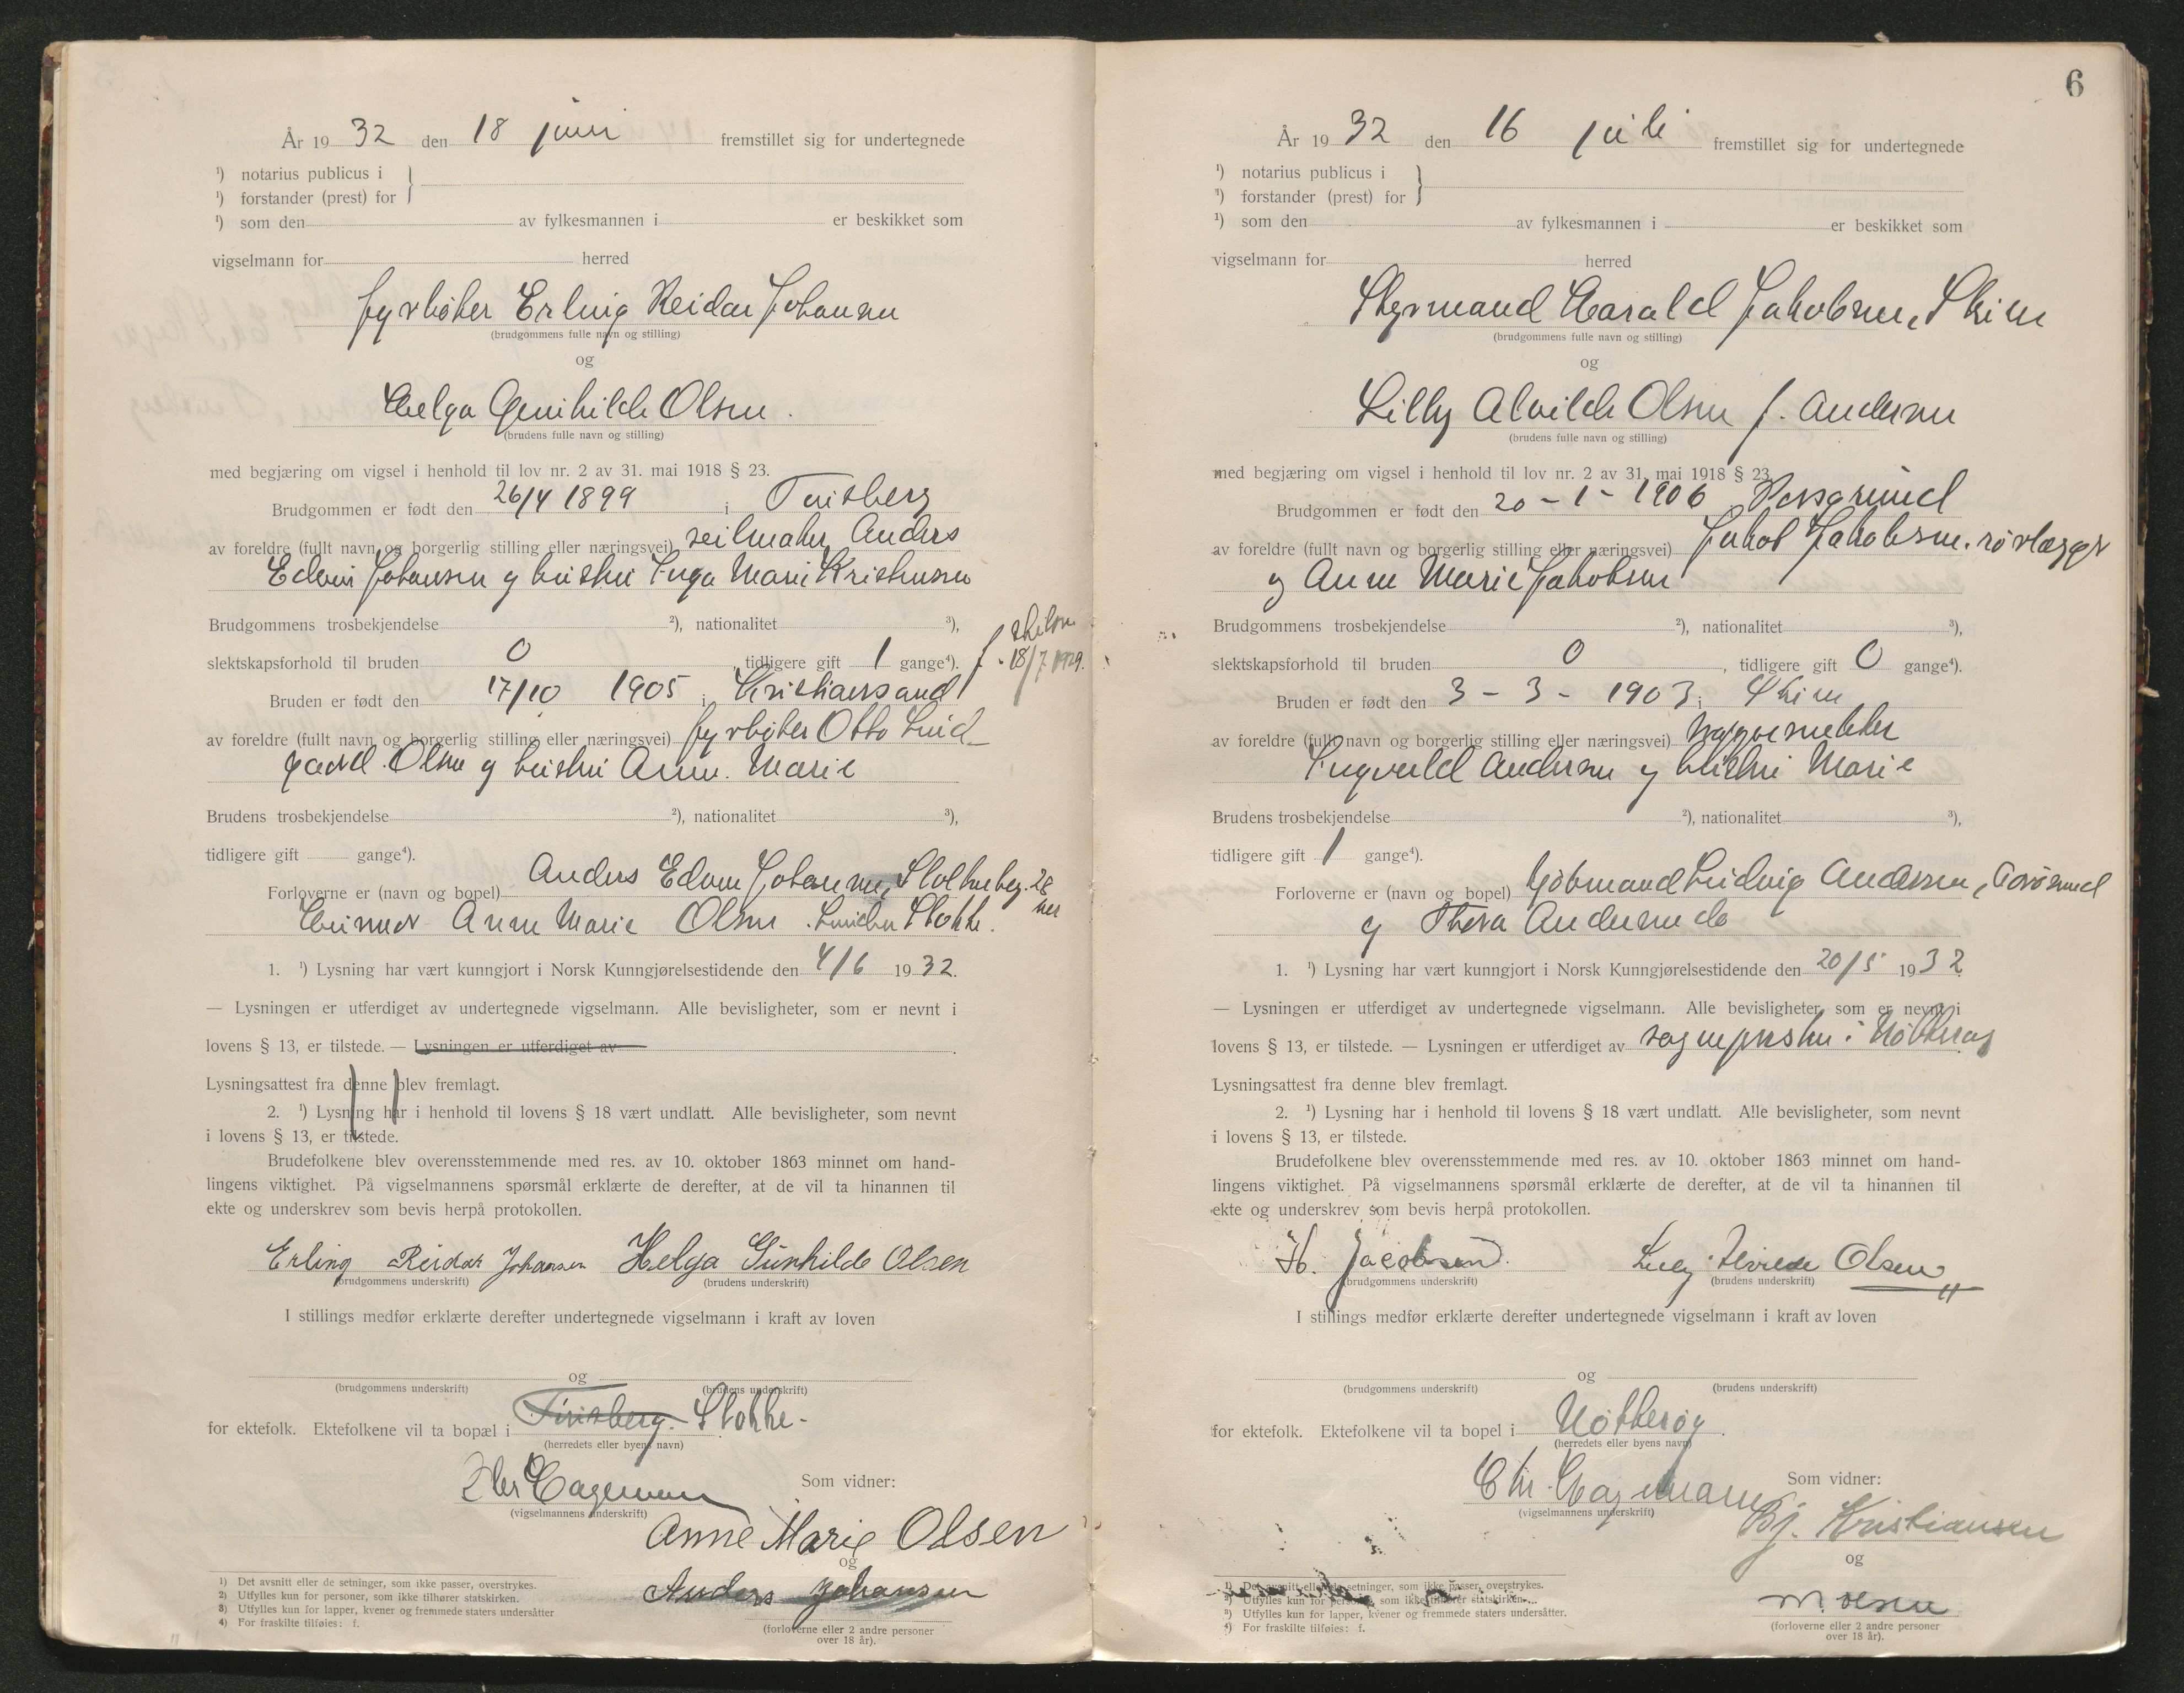 År 19 32 den 18 juni fremstillet sig for undertegnede
¹) notarius publicus i
¹) forstander (prest) for
¹) som den av fylkesmannen i er beskikket som
vigselmann for herred
fyrbøter Erling Reidar Johansen
(brudgommens fulle navn og stilling)
og
Helga Gunhilde Olsen.
(brudens fulle navn og stilling)
med begjæring om vigsel i henhold til lov nr. 2 av 31. mai 1918 § 23.
Brudgommen er født den 26/4 1899 i Tønsberg
av foreldre (fullt navn og borgerlig stilling eller næringsvei) seilmaker Anders
Edvin Johansen og hustru Inga Marie Kristensen
Brudgommens trosbekjendelse ²), nationalitet ³),
slektskapsforhold til bruden 0 tidligere gift 1 gange⁴). f. 18/7 1929.
Bruden er født den 17/10 1905 i Kristiansand
av foreldre (fullt navn og borgerlig stilling eller næringsvei) fyrbøter Otto Lind-
gaard Olsen og hustru Anne Marie
Brudens trosbekjendelse ²), nationalitet ³),
tidligere gift gange⁴).
Forloverne er (navn og bopel) Anders Edvin Johansen, 28
Anne Marie Olsen Stokke.
1. ¹) Lysning har vært kunngjort i Norsk Kunngjørelsestidende den 4/6 1932.
— Lysningen er utferdiget av undertegnede vigselmann. Alle bevisligheter, som er nevnt i
lovens § 13, er tilstede. — Lysningen er utferdiget av
Lysningsattest fra denne blev fremlagt.
2. ¹) Lysning har i henhold til lovens § 18 vært undlatt. Alle bevisligheter, som nevnt
i lovens § 13, er tilstede.
Brudefolkene blev overensstemmende med res. av 10. oktober 1863 minnet om hand-
lingens viktighet. På vigselmannens spørsmål erklærte de derefter, at de vil ta hinannen til
ekte og underskrev som bevis herpå protokollen.
Erling Reidar Johansen Helga Gunhilde Olsen
(brudgommens underskrift) (brudens underskrift)
I stillings medfør erklærte derefter undertegnede vigselmann i kraft av loven
og
(brudgommens underskrift) (brudens underskrift)
for ektefolk. Ektefolkene vil ta bopæl i Tønsberg. Stokke-
(herredets eller byens navn)
Chr Hagemann Som vidner:
(vigselmannens underskrift)
Anne Marie Olsen
og
Anders Johansen
(forloverne eller 2 andre personer
over 18 år).
¹) Det avsnitt eller de setninger, som ikke passer, overstrykes.
²) Utfylles kun for personer, som ikke tilhører statskirken.
³) Utfylles kun for lapper, kvener og fremmede staters undersåtter
⁴) For fraskilte tilføies: f.
6
År 19 32 den 16 juli fremstillet sig for undertegnede
¹) notarius publicus i
¹) forstander (prest) for
¹) som den av fylkesmannen i er beskikket som
vigselmann for herred
Styrmand Harald Jakobsen, Skien
(brudgommens fulle navn og stilling)
og
Lilly Alvilde Olsen f. Andersen
(brudens fulle navn og stilling)
med begjæring om vigsel i henhold til lov nr. 2 av 31. mai 1918 § 23
Brudgommen er født den 20 - 1 - 1906 Porsgrund
av foreldre (fullt navn og borgerlig stilling eller næringsvei) Jakob Jakobsen. rørlægger
og Anne Marie Jakobsen
Brudgommens trosbekjendelse ²), nationalitet ³),
slektskapsforhold til bruden 0, tidligere gift 0 gange⁴).
Bruden er født den 3 - 3 - 1903 i Skien
av foreldre (fullt navn og borgerlig stilling eller næringsvei)
Ingvald Andersen og hustru Marie
Brudens trosbekjendelse ²), nationalitet ³),
tidligere gift 1 gange⁴).
Forloverne er (navn og bopel) Ludvig Andersen, Årøsund
og Thora Andersen do
1. ¹) Lysning har vært kunngjort i Norsk Kunngjørelsestidende den 20/5 1932
— Lysningen er utferdiget av undertegnede vigselmann. Alle bevisligheter, som er nevnt i
lovens § 13, er tilstede. — Lysningen er utferdiget av sognepresten i Nøtterøy
Lysningsattest fra denne blev fremlagt.
2. ¹) Lysning har i henhold til lovens § 18 vært undlatt. Alle bevisligheter, som nevnt
i lovens § 13, er tilstede.
Brudefolkene blev overensstemmende med res. av 10. oktober 1863 minnet om hand-
lingens viktighet. På vigselmannens spørsmål erklærte de derefter, at de vil ta hinannen til
ekte og underskrev som bevis herpå protokollen.
H. Jacobsen. Lilly Alvilde Olsen
(brudgommens underskrift) (brudens underskrift)
I stillings medfør erklærte derefter undertegnede vigselmann i kraft av loven
og
(brudgommens underskrift) (brudens underskrift)
for ektefolk. Ektefolkene vil ta bopel i Nøtterøy.
(herredets eller byens navn)
Chr. Hagemann Som vidner:
(vigselmannens underskrift)
Bj. Kristiansen
og
M. Olsen
(forloverne eller 2 andre personer
over 18 år).
¹) Det avsnitt eller de setninger, som ikke passer, overstrykes.
²) Utfylles kun for personer, som ikke tilhører statskirken.
³) Utfylles kun for lapper, kvener og fremmede staters undersåtter.
⁴) For fraskilte tilføies: f.